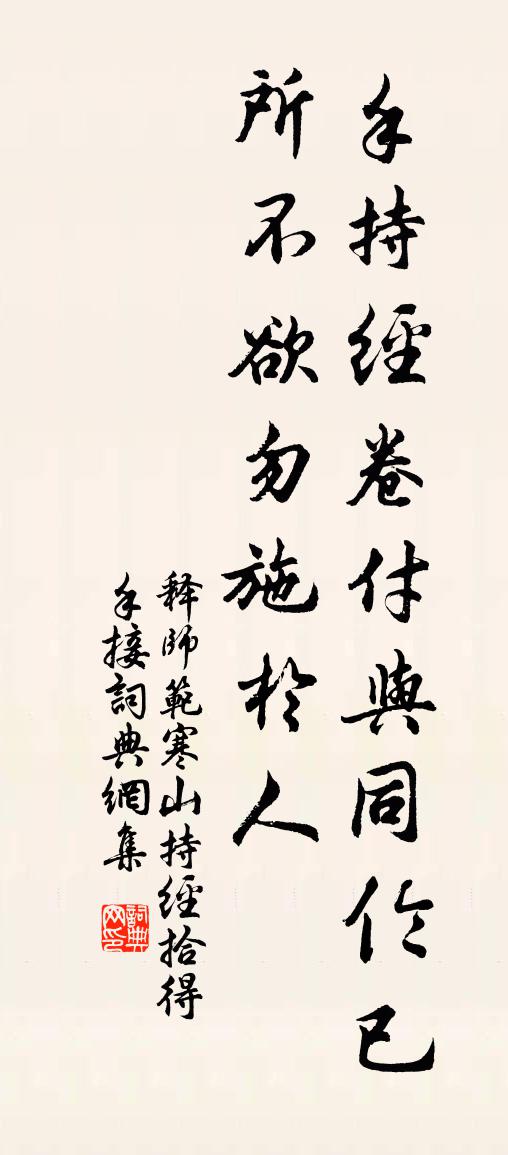 手持經卷付與同伶已
所不欲勿施於人
释師範寒山持經拾得
手接詞典網集
詞典
网印